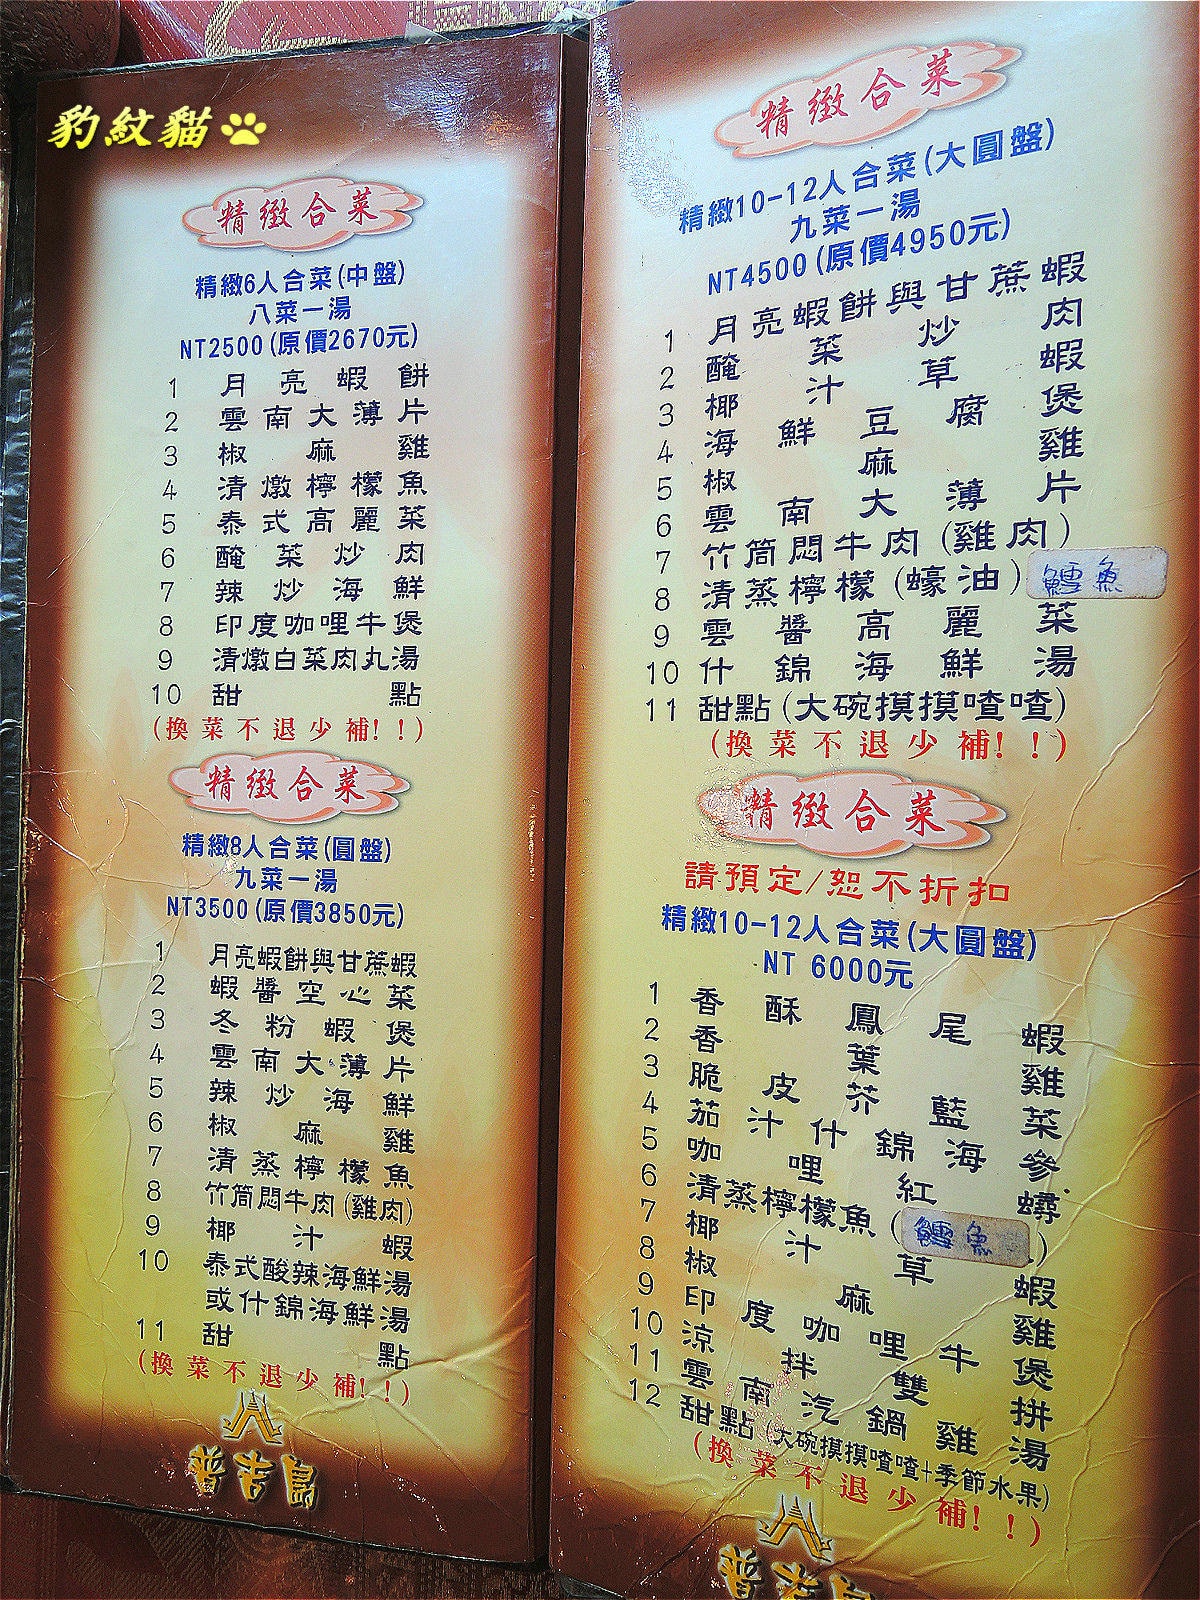 豹紋貓
精緻合菜
精緻6人合菜(中盤)
八菜一湯
NT2500(原價2670元)
1 月亮蝦餅
2 雲南大薄片
3 椒麻雞
4 清燉檸檬魚
5 泰式高麗菜
6 醃菜炒肉
7 辣炒海鮮
8 印度咖哩牛煲
9 清燉白菜肉丸湯
10 甜點
(換菜不退少補!!)
精緻合菜
精緻8人合菜(圓盤)
九菜一湯
NT3500(原價3850元)
1 月亮蝦餅與甘蔗蝦
2 蝦醬空心菜
3 冬粉蝦煲
4 雲南大薄片
5 辣炒海鮮
6 椒麻雞
7 清蒸檸檬魚
8 竹筒悶牛肉(雞肉)
9 椰汁蝦
10 泰式酸辣海鮮湯
或什錦海鮮湯
11 甜點
(換菜不退少補!!)
普吉島
精緻合菜
精緻10-12人合菜(大圓盤)
九菜一湯
NT4500(原價4950元)
1 月亮蝦餅與甘蔗蝦
2 醃菜炒肉
3 椰汁草蝦
4 海鮮豆腐煲
5 椒麻雞
6 雲南大薄片
7 竹筒悶牛肉(雞肉)
8 清蒸檸檬(蠔油)鱈魚
9 雲醬高麗菜
10 什錦海鮮湯
11 甜點(大碗摸摸喳喳)
(換菜不退少補!!)
精緻合菜
請預定/恕不折扣
精緻10-12人合菜(大圓盤)
NT 6000元
1 香酥鳳尾蝦
2 香葉雞
3 脆皮芥藍菜
4 茄汁什錦海參
5 咖哩紅蟳
6 清蒸檸檬魚(鱈魚)
7 椰汁草蝦
8 椒麻雞
9 印度咖哩牛煲
10 涼拌雙拼
11 雲南汽鍋雞湯
12 甜點(大碗摸摸喳喳+季節水果)
(換菜不退少補!!)
普吉島